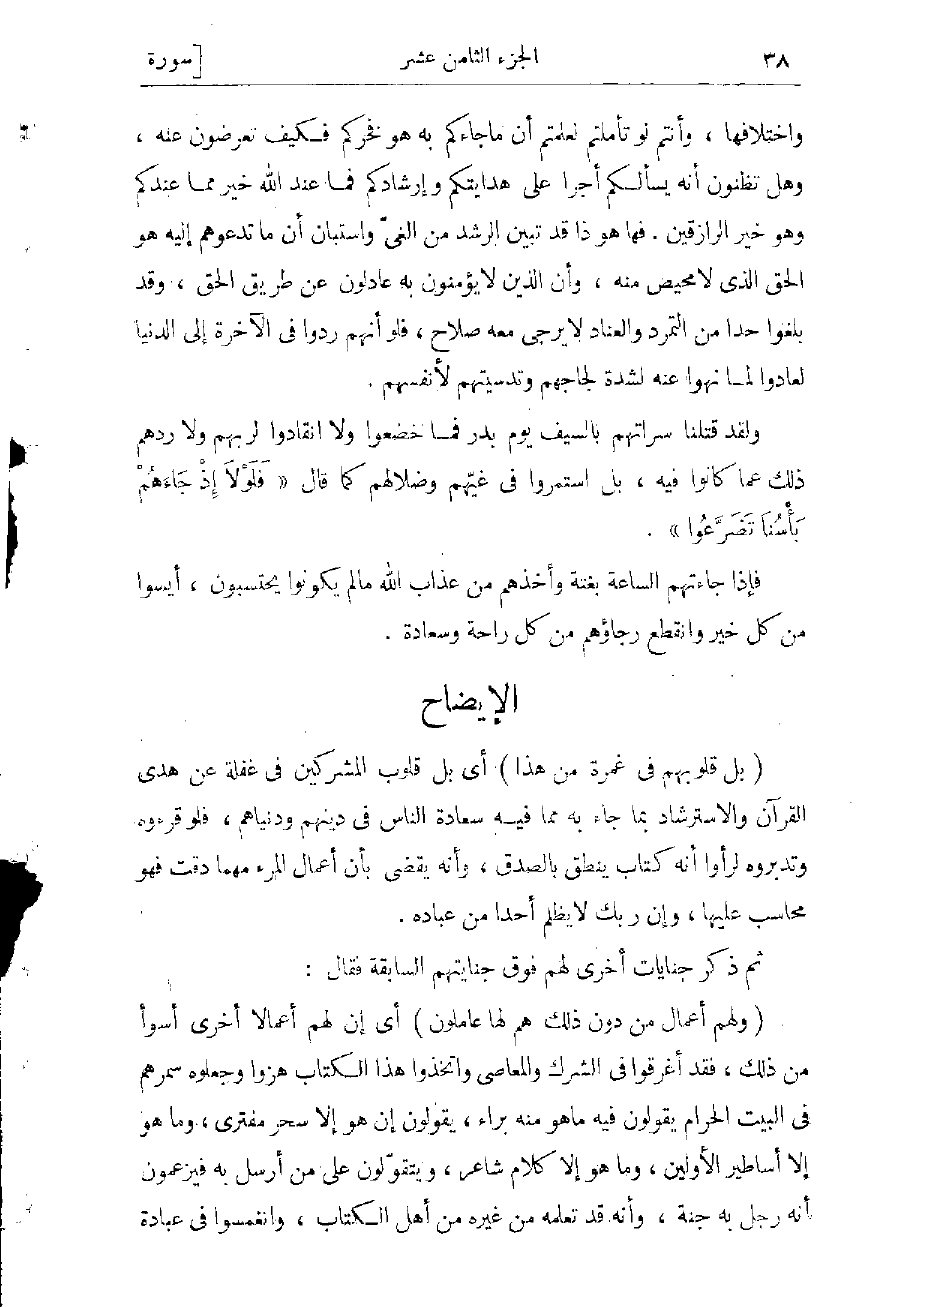 ٣٨ الجزء الثامن عشر [سورة
واختلافها ، وأنتم لو تأملتم لعلمتم أن ماجاءكم به هو فخركم فكيف تعرضون عنه ،
وهل تظنون أنه يسألكم أجرا على هدايتكم وإرشادكم فما عند الله خير مما عندكم
وهو خير الرازقين . فها هو ذا قد تبين الرشد من الغىّ واستبان أن ما تدعوهم إليه هو
الحق الذى لامحيص منه ، وأن الذين لايؤمنون به عادلون عن طريق الحق ، وقد
بلغوا حدا من التمرد والعناد لايرجى معه صلاح ، فلو أنهم ردوا فى الآخرة إلى الدنيا
لعادوا لما نهوا عنه لشدة لجاجهم وتدسيتهم لأنفسهم .
ولقد قتلنا سراتهم بالسيف يوم بدر فما خضعوا ولا انقادوا لربهم ولا ردهم
ذلك عما كانوا فيه ، بل استمروا فى غيّهم وضلالهم كما قال « فَلَوْلاَ إِذْ جَاءَهُمْ
بَأْسُنَا تَضَرَّعُوا » .
فإذا جاءتهم الساعة بغتة وأخذهم من عذاب الله مالم يكونوا يحتسبون ، أيسوا
من كل خير وانقطع رجاؤهم من كل راحة وسعادة .
الإيضاح
( بل قلوبهم فى غمرة من هذا ) أى بل قلوب المشركين فى غفلة عن هدى
القرآن والاسترشاد بما جاء به مما فيه سعادة الناس فى دينهم ودنياهم ، فلو قرءوه
وتدبروه لرأوا أنه كتاب ينطق بالصدق ، وأنه يقضى بأن أعمال المرء مهما دقت فهو
محاسب عليها ، وإن ربك لايظلم أحدا من عباده .
ثم ذكر جنايات أخرى لهم فوق جنايتهم السابقة فقال :
( ولهم أعمال من دون ذلك هم لها عاملون ) أى إن لهم أعمالا أخرى أسوأ
من ذلك ، فقد أغرقوا فى الشرك والمعاصى واتخذوا هذا الكتاب هزوا وجعلوه سمرهم
فى البيت الحرام يقولون فيه ماهو منه براء ، يقولون إن هو إلا سحر مفترى ، وما هو
إلا أساطير الأولين ، وما هو إلا كلام شاعر ، ويتقوّلون على من أرسل به فيزعمون
أنه رجل به جنة ، وأنه قد تعلمه من غيره من أهل الكتاب ، وانغمسوا فى عبادة